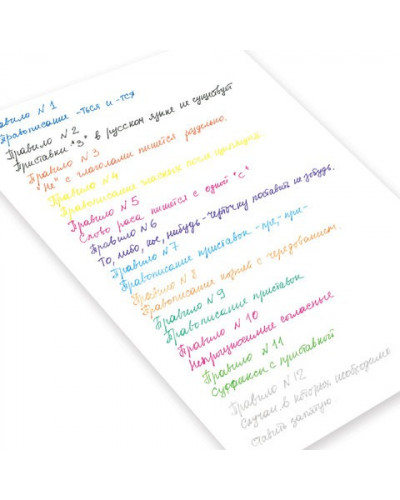 авило N 1
Правописание -ться и -тся
Правило N 2
Приставки "З" в русском языке не существует
Правило N 3
"Не" с глаголами пишется раздельно.
Правило N 4
Правописание гласных после шипящих.
Правило N 5
Слово раса пишется с одной "с"
Правило N 6
То, либо, кое, нибудь - черточку поставить не забудь.
Правило N 7
Правописание приставок -пре, -при-
Правило N 8
Правописание корней с чередованием.
Правило N 9
Правописание приставок
Правило N 10
Непроизносимые согласные
Правило N 11
Суффиксы с приставкой
Правило N 12
Случаи в которых необходимо
ставить запятую.